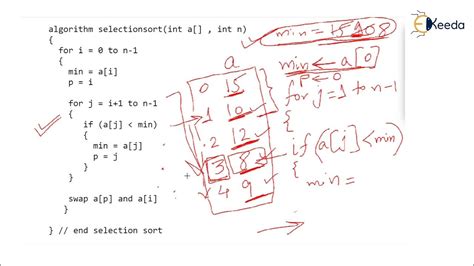 algorithm selectionsort(int a[] , int n)
{
for i = 0 to n-1
{
min = a[i]
p = i
for j = i+1 to n-1
{
if (a[j] < min)
{
min = a[j]
p = j
}
}
swap a[p] and a[i]
}
} // end selection sort
a
0 15
1 10
2 12
3 8
4 9
min = 15 10 8
min ← a[0]
p ← 0
for j = 1 to n-1
{
if (a[j] < min)
{
min =
Ekeeda